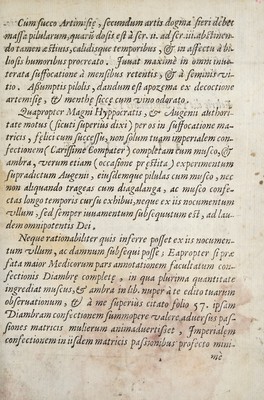 Cum succo Artimisię, secundum artis dogma fieri debet
massa pilularum, quarũ dosis est à scr. ii. ad scr. iii. abstinen-
do tamen æstiuis, calidisque temporibus, & in affectu à bi-
liosis humoribus procreato. Iuuat maximè in omni inue-
terata suffocatione à mensibus retentis, & à seminis vi-
tio. Assumptis pilolis, dandum est apozema ex decoctione
artemisię, & menthę siccę cum vino odorato.
Quapropter Magni Hyppocratis, & Augenii authori-
tate motus (sicuti superius dixi) per os in suffocatione ma-
tricis, fœlici cum successu, non solum tuam imperialem con-
fectionem (Carissime Compater) completam cum musco, &
ambra, verum etiam (occasione pręstita) experimentum
supradictum Augenii, eiusdemque pilulas cum musco, nec
non aliquando trageas cum diagalanga, ac musco confe-
ctas longo temporis cursu exhibui, neque ex iis nocumentum
vllum, sed semper iuuamentum subsequutum est, ad lau-
dem omnipotentis Dei.
Neque rationabiliter quis inferre posset ex iis nocumen-
tum vllum, ac damnum subsequi posse; Eapropter si prę
fata maior Medicorum pars annotationem facultatum con-
fectionis Diambrę completę, in qua plurima quantitate
ingrediat muscus, & ambra in lib. nuper à te edito tuarum
obseruationum, & à me superius citato folio 57. ipsam
Diambram confectionem summopere valere aduersus pas-
siones matricis mulierum animaduertisset, Imperialem
confectionem in iisdem matricis passionibus profecto mini-
mè